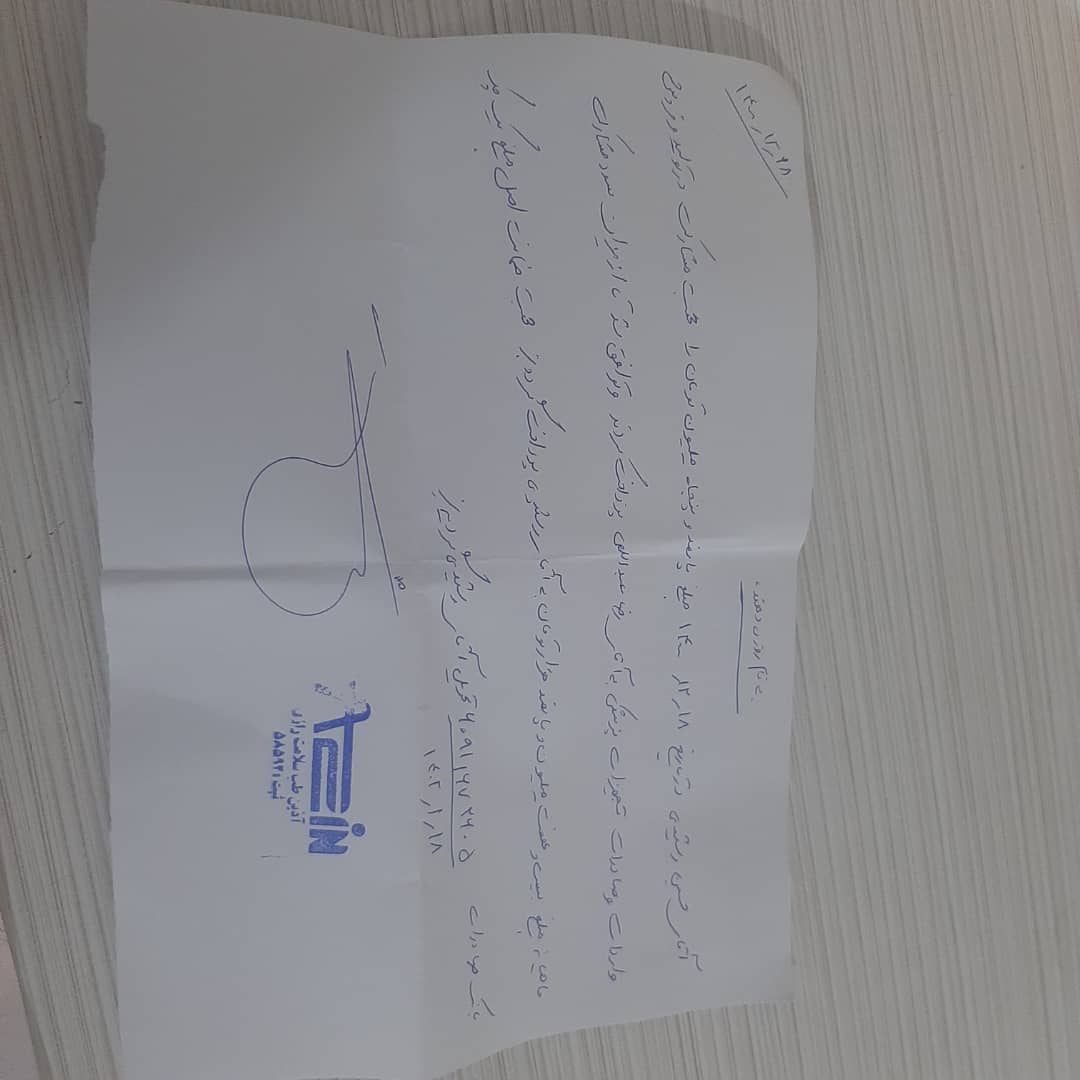 ۱۴۰۰,۱۲,۱۸
به نام روزی دهنده
آقای حسین رشیدی در تاریخ ۱۴۰۰,۱۲,۱۸ مبلغ پانصد و پنجاه میلیون تومان را جهت مشارکت در تولید و فروش
واردات و صادرات تجهیزات پزشکی به آقای رضا عبداللهی پرداخت کردند و توافق شد تا از میزان سود مشارکت
ماهیانه مبلغ بیست و هفت میلیون و پانصد هزار تومان به آقای رشیدی پرداخت گردد نیز جهت ضمانت اصل مبلغ یک چک
بانک صادرات ۶۰۹۱,۶۷۳۶۰۵ تحویل آقای رشیدی گردید
۱۴۰۲,۱,۱۸
آذین طب سلامت رازی
ثبت: ۵۸۵۹۲۰